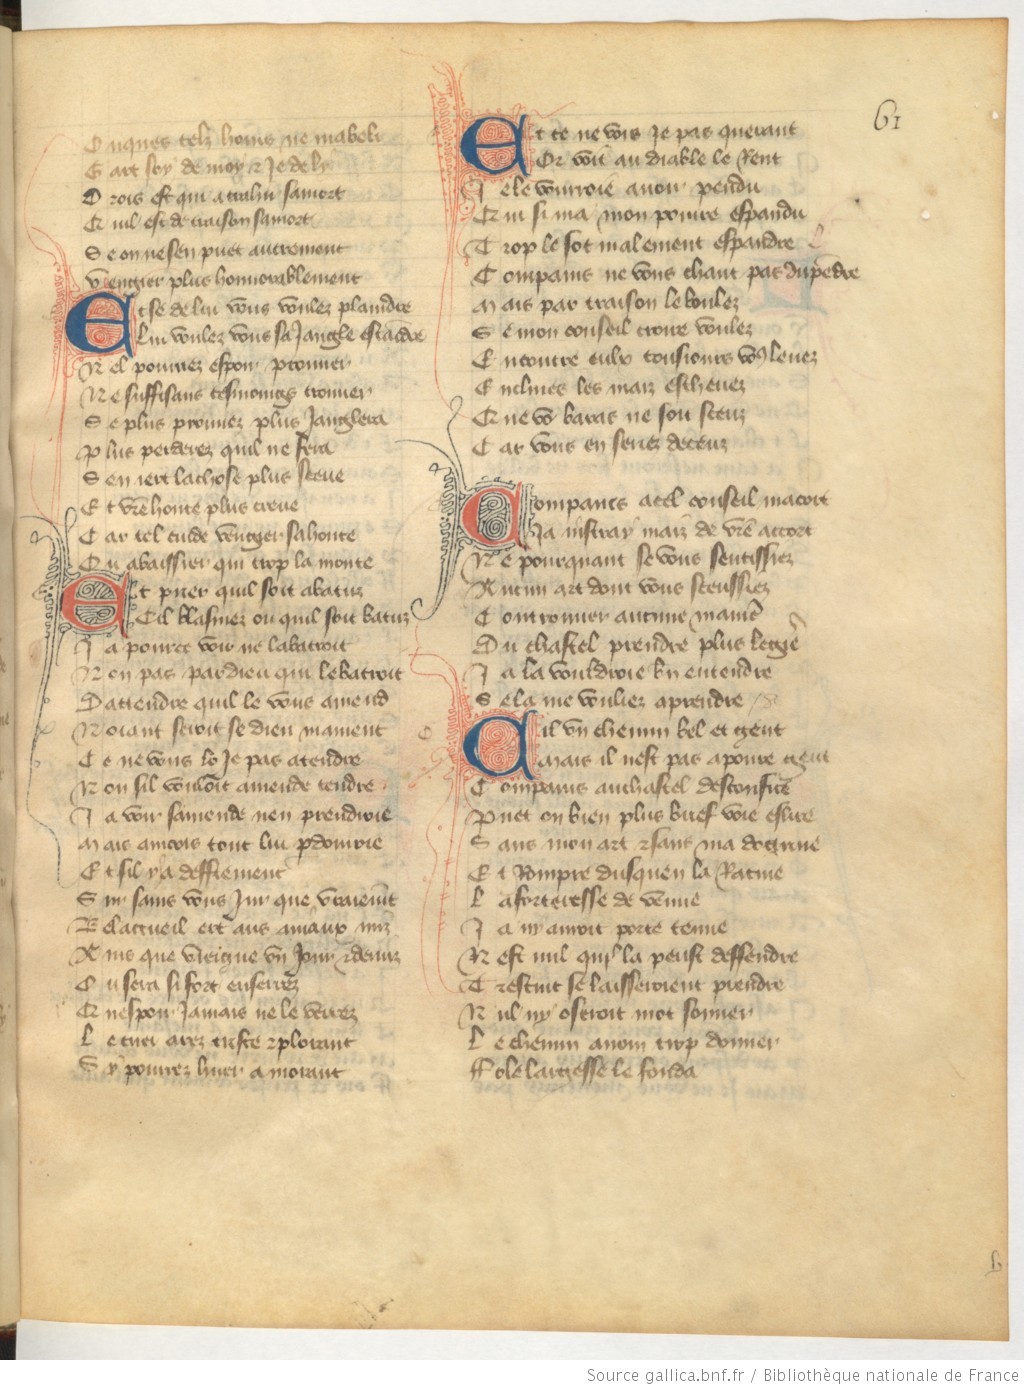 61
Onques telz homs ne mabeli
Gart soy de moy et je de ly
Drois est qui a trahir samort
Cr nil est de traison samort
Se on ne sen puet autrement
Vengier plus honnorablement
Et se de lui vous voulez plaindre
Lui voulez vous sa jangle estaidre
Nel pourrez espoir prouver
Ne suffisans tesmoings trouver
Se plus prouvez plus janglera
Plus perderez quil ne fera
Sen iert la chose plus sceue
Et vre honte plus creue
Car tel cuide vengier sa honte
Ou abaissier qui trop la monte
Et puer quil soit abatuz
Cil blasmez ou quil soit batuz
Ja pource voir ne labatroit
Non pas par dieu qui le batroit
Dattendre quil le vous amend
Noiant seroit se dieu mament
Ce ne vous lo je pas atendre
Non sil vouloit amende tendre
Ja voir samende nen prendroie
Mais aincois tout lui pdonroie
Et sil y a deffiement
Sur sains vous jur que vraiemt
Belacueil ert aus aniaux mis
Ains que viengne vn jour et demiz
Ou sera si fort enserrez
Cr nespoir jamais ne le verrez
Le cuer arez triste et plorant
Sy pourrez liuer a morant
Et ce ne vois je pas querant
Or voit au diable le Rent
Je le vourroie auoir pendu
Cr cui si ma mon poiure espandu
Trop le sot malement espandre
Compains ne vous chaut pas du pēdre
Mais par traison le boulez
Se mon conseil croire voulez
Encontre eulx tousiours vo9 leuez
Enclinez les maiz escheuez
Cr ne vo baras ne soit sceuz
Car vous en seriez deceuz
Compains a cel conseil macort
Ja nistray maiz de vre accort
Ne pourquant se vous sentissiez
Aucun art dont vous sceussiez
Controuuer aucune maniē
Du chastel prendre plus legē
Ja la vouldroie bn entendre
Se la me vouliez aprendre
Cil vn chemin bel et gent
Mais il nest pas a poure gent
Compains au chastel desconfire
Puet on bien plus brief voie eslire
Sans mon art et sans ma doctrine
Et Rompre dusquen la Racine
La forteresse de venue
Ja ny auroit porte tenue
Nest nul qui la peust deffendre
Trestuit se laisseroient prendre
Nul ny oseroit mot sonner
Le chemin a nom trop donner
ffole largesse le fonda
Source gallica.bnf.fr / Bibliothèque nationale de France